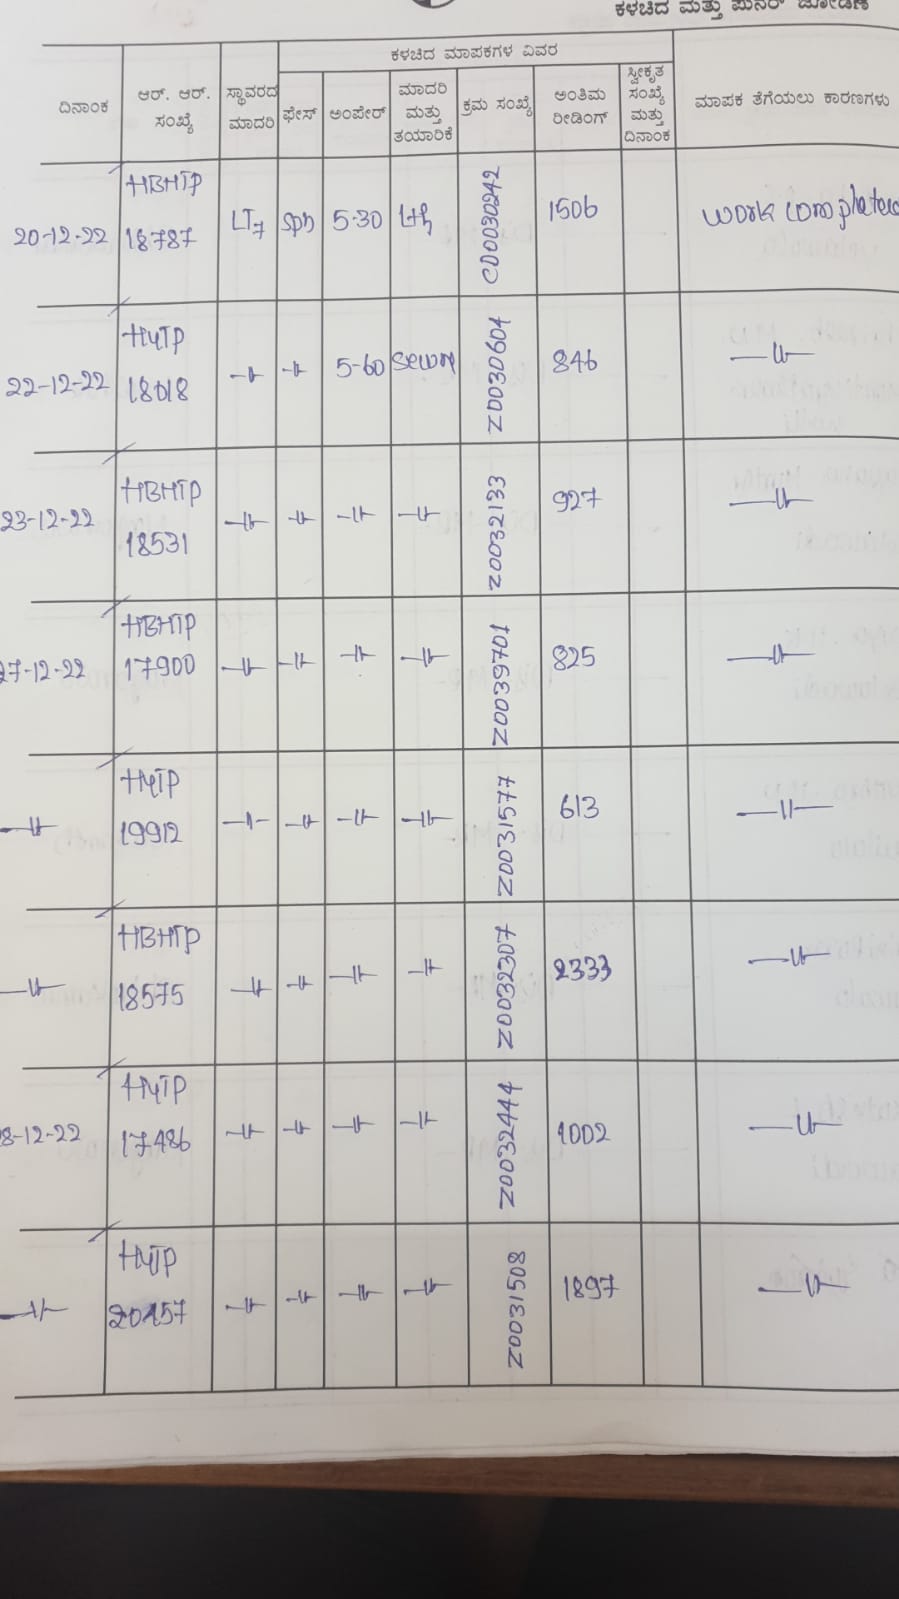 ಕಳಚಿದ ಮತ್ತು ಪುನರ್ ಜೋಡಣೆ
ಕಳಚಿದ ಮಾಪಕಗಳ ವಿವರ
ದಿನಾಂಕ
ಆರ್. ಆರ್. ಸಂಖ್ಯೆ
ಸ್ಥಾವರದ ಮಾದರಿ
ಫೇಸ್
ಅಂಪೇರ್
ಮಾದರಿ ಮತ್ತು ತಯಾರಿಕೆ
ಕ್ರಮ ಸಂಖ್ಯೆ
ಅಂತಿಮ ರೀಡಿಂಗ್
ಸ್ವೀಕೃತ ಸಂಖ್ಯೆ ಮತ್ತು ದಿನಾಂಕ
ಮಾಪಕ ತೆಗೆಯಲು ಕಾರಣಗಳು
20-12-22 HBHTP 18787 LT7 Sph 5-30 L&T CD0030242 1506 work completed
22-12-22 H4TP 18018 -||- -||- 5-60 Secure Z0030604 846 -||-
23-12-22 HBHTP 18531 -||- -||- -||- -||- Z0032133 927 -||-
27-12-22 HBHTP 17900 -||- -||- -||- -||- Z0035701 825 -||-
-||- H4TP 19912 -||- -||- -||- -||- Z0031577 613 -||-
-||- HBHTP 18575 -||- -||- -||- -||- Z0032307 2333 -||-
28-12-22 H4TP 17486 -||- -||- -||- -||- Z0032444 1002 -||-
-||- H4TP 20157 -||- -||- -||- -||- Z0031508 1897 -||-